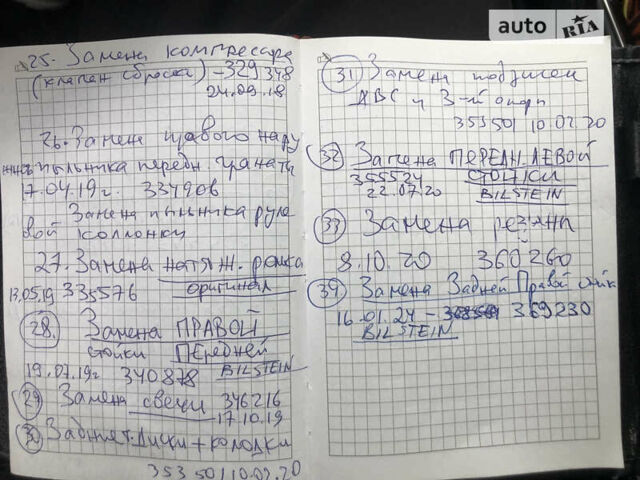 25. Замена компрессора
(клапан сброса) - 329348
24.09.18
26. Замена правого нару
жного пыльника передн. гранаты
17.04.19г. 334906
Замена пыльника руле
вой колонки
27. Замена натяж. ролика
оригинал
13.05.19 335576
28. Замена ПРАВОЙ
стойки ПЕРЕДНЕЙ
19.07.19г 340878 BILSTEIN
29 Замена свечи 346216
17.10.19
30 Задние т. диски + колодки
353501 10.02.20
auto RIA
31 Замена подушек
ДВС и 3-й опоры
353501 10.02.20
32 Замена ПЕРЕДН. ЛЕВОЙ
355524 СТОЙКИ
22.07.20 BILSTEIN
33 Замена резины
8.10.20 360260
34 Замена Задней Правой стойк
16.01.21 - 369230
BILSTEIN